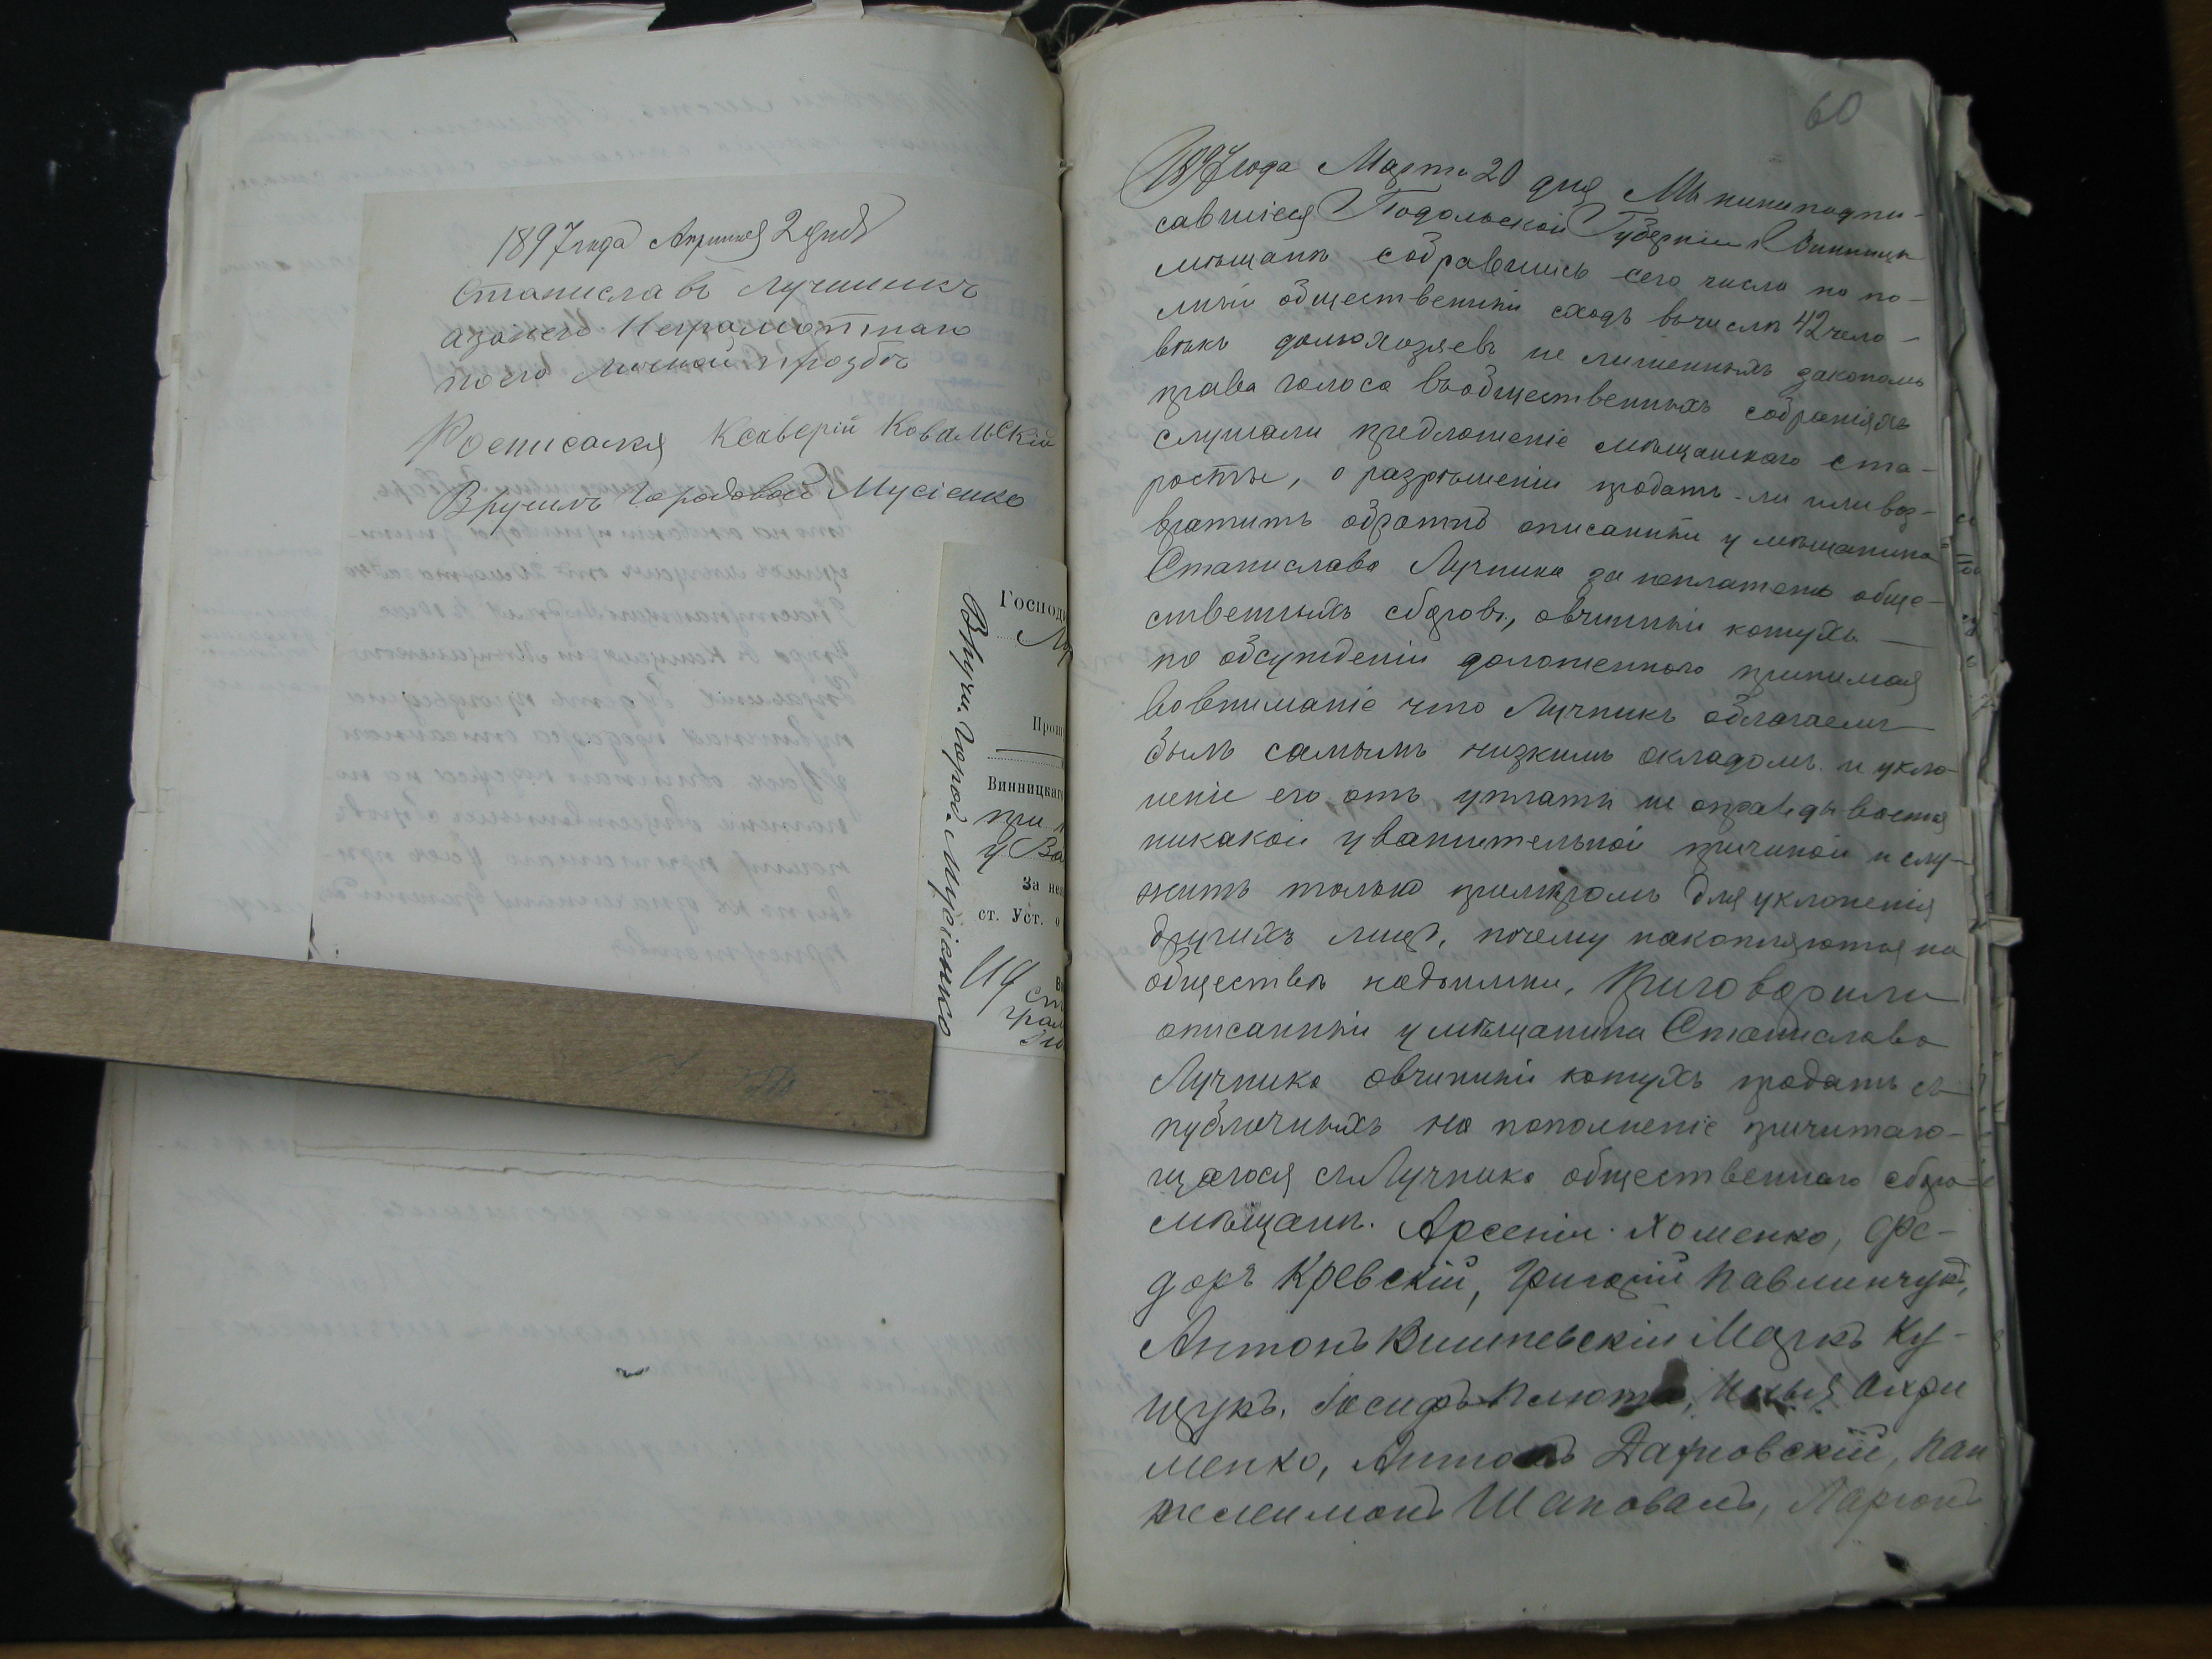 1897 года Апреля 2 дня
Станиславъ Лучникъ
азанего Неграмотнаго
поего личной прозбѣ
Росписался Ксаверій Ковальскій
Вручилъ Городовой Мусіенко
Вручи. Город. Мусіенко
Господ
Прош
Винницкаго
при
у Ва
За неи
ст. Уст. о
60
1897 года Марта 20 дня Мы нижеподпи-
савшіеся Подольской Губерніи г. Винницы
мѣщане собравшись сего числа на по-
лный общественный сходъ вчислѣ 42 чело-
вѣкъ домохозяевъ не лишенныхъ закономъ
права голоса въобщественныхъ собраніяхъ
слушали предложеніе мѣщанскаго ста-
росты, о разрѣшеніи продать-ли или воз-
вратить обратно описанный у мѣщанина
Станислава Лучника за неплатежъ обще-
ственныхъ сборовъ, овчинный кожухъ
по обсужденіи доложеннаго принимая
вовниманіе что Лучникъ облагаемъ
былъ самымъ низкимъ окладомъ и укло-
неніе его отъ уплаты не оправдывается
никакой уважительной причиной и слу-
житъ только примѣромъ для уклоненія
другихъ лицъ, почему накопляются на
обществѣ недоимки, Приговорили
описанный у мѣщанина Станислава
Лучника овчинный кожухъ продать съ
публичныхъ на пополненіе причитаю-
щагося съ Лучника общественнаго сбора
мѣщане. Арсеній Хоменко, Фе-
доръ Кревскій, Григорій Павлинчукъ,
Антонъ Вишневскій Маркъ Ку-
щукъ, Іосифъ Плюта, Илья Охри
менко, Антонъ Дарновскій, Пан
телеимонъ Шаповалъ, Ларіонъ